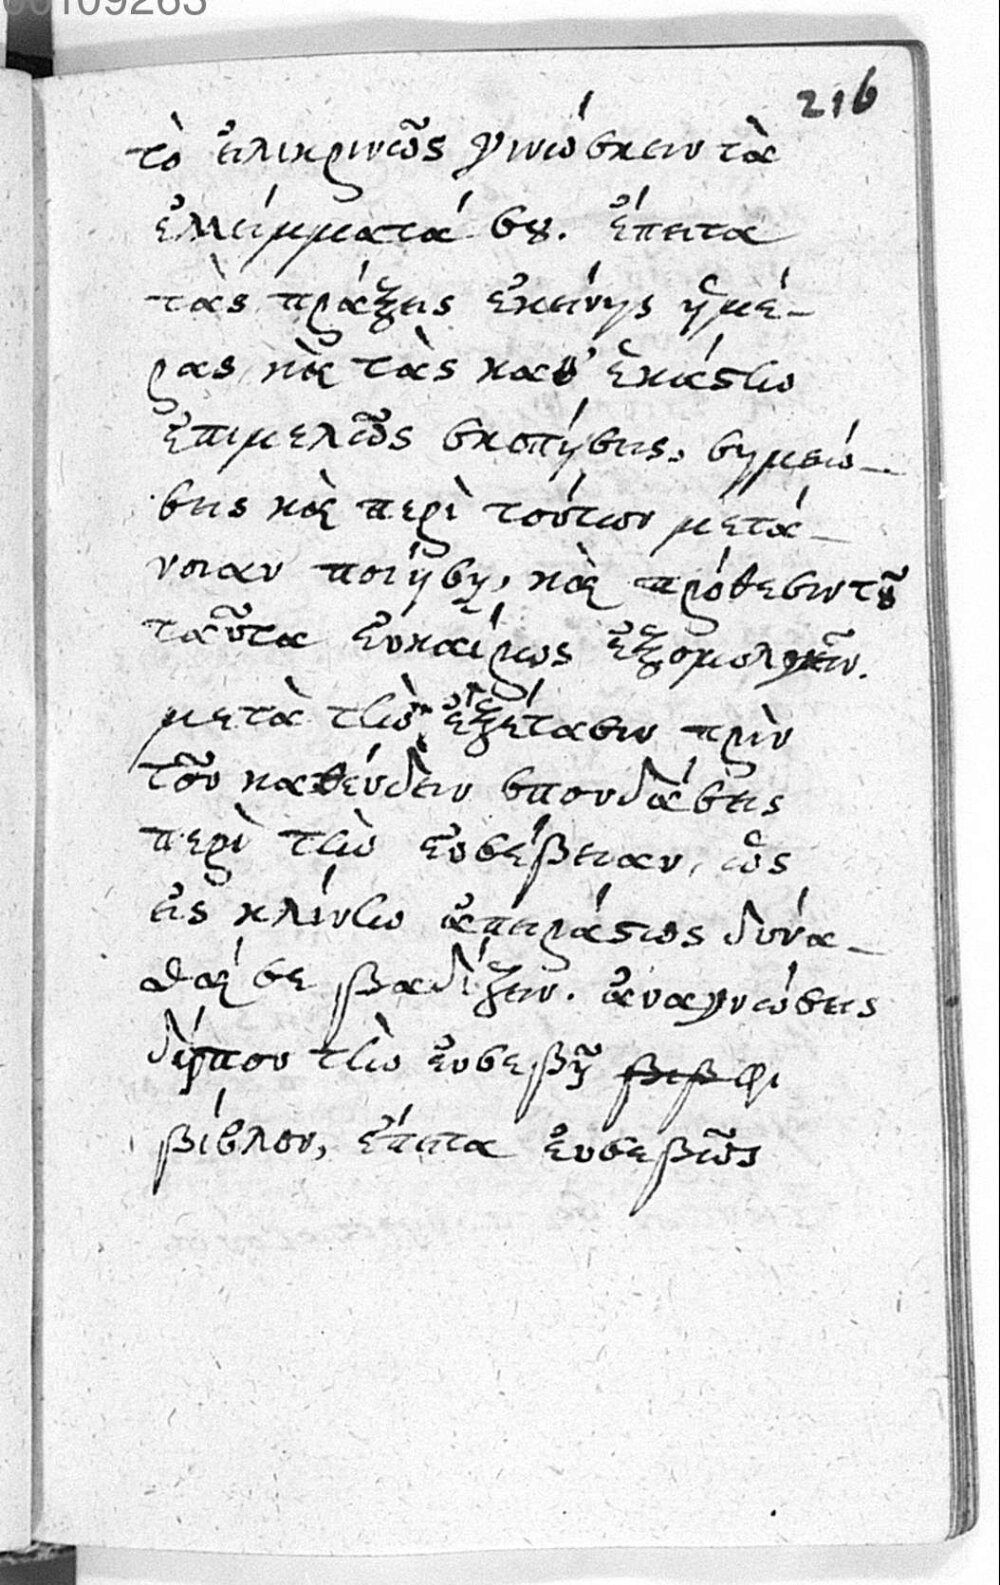 216
τὸ εἰλικρινῶς γινώσκειν τὰ
ἐλλείμματά σου. ἔπειτα
τὰς πράξεις ἐκείνης ἡμέ-
ρας, καὶ τὰς καθ' ἑκάστην
ἐπιμελῶς σκοπήσεις, σημειώ-
σεις καὶ περὶ τούτων μετά-
νοιαν ποιήσῃ, καὶ πρόθεσιν τοῦ
ταῦτα εὐκαίρως ἐξομολογεῖν.
μετὰ τὴν ἐξέτασιν πρὶν
τοῦ καθεύδειν σπουδάσεις
περὶ τὴν εὐσέβειαν, ὡς
εἰς κλίνην ἀπειράστως δύνα-
σθαί σε βαδίζειν. ἀναγνώσεις
δήπου τὴν εὐσεβῆ
βίβλον, ἔπειτα εὐσεβῶς